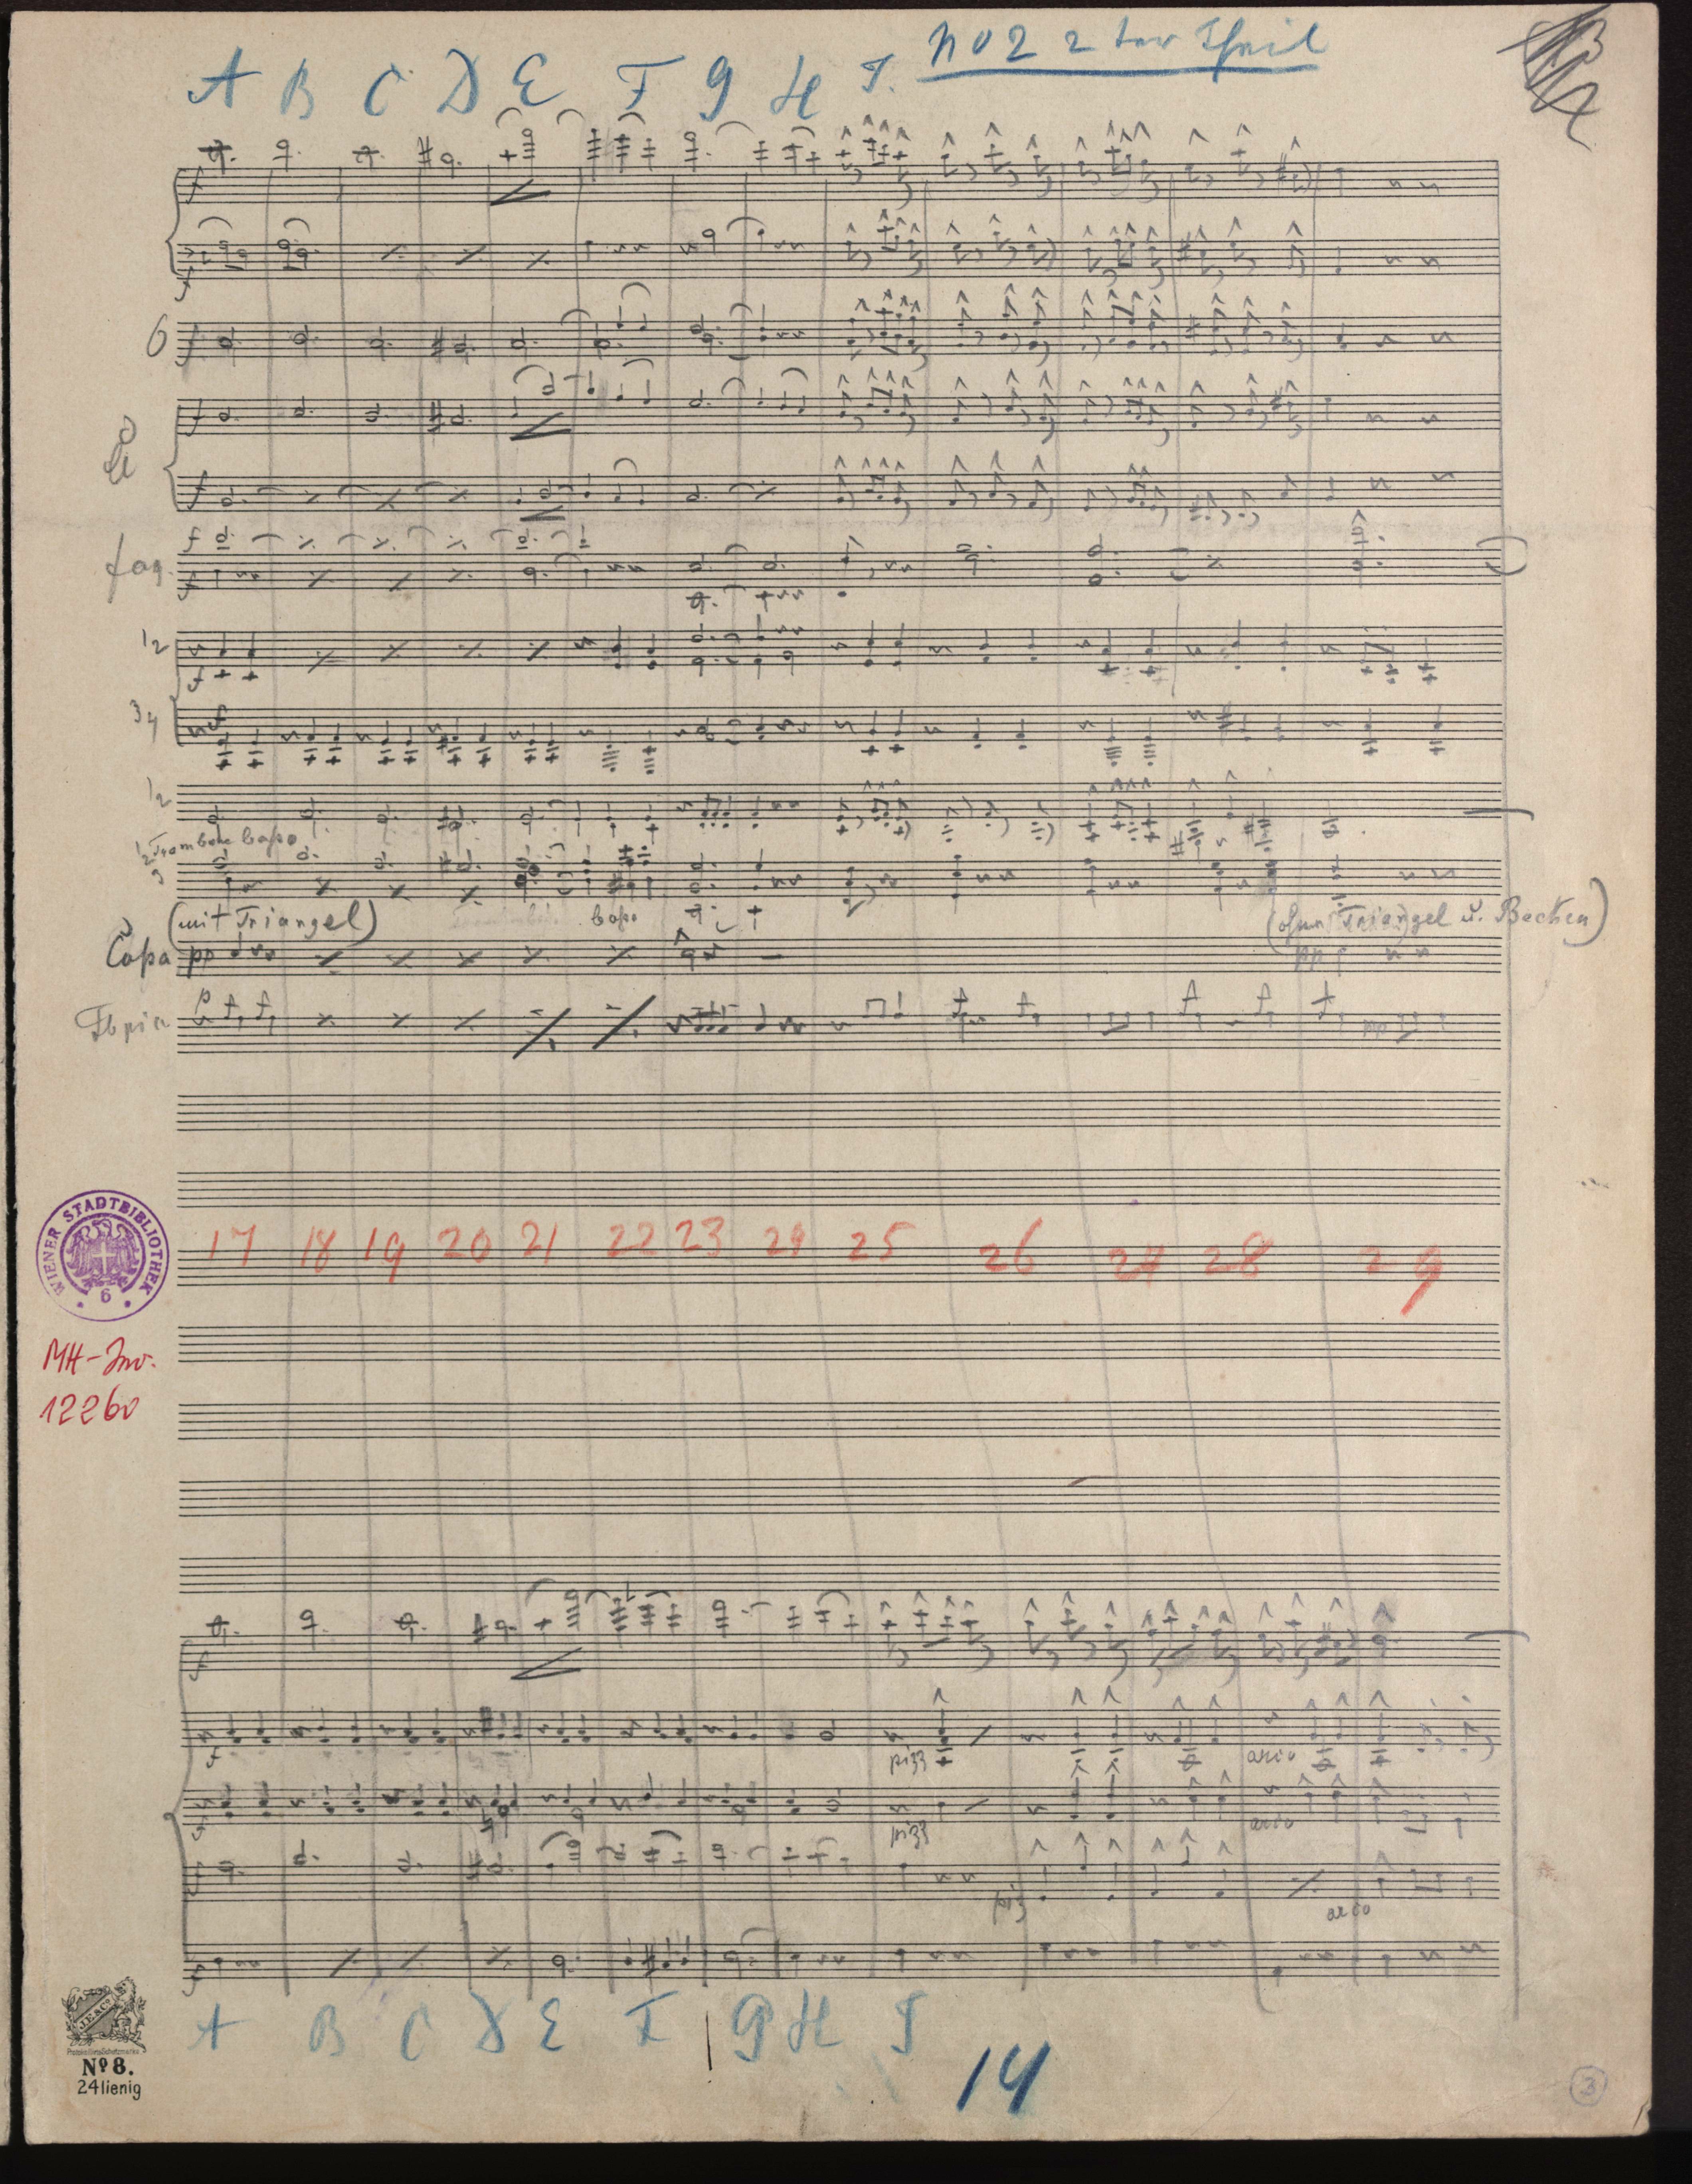 No 2 2ter Theil
A B C D E F G H I.
f
f
6 f
f
Cl f
f
fag. f
1/2 f
3/4 mf
1/2
1/2 Trombone basso
3
(mit Triangel) basso (ohne Triangel u. Becken)
Cassa pp pp
p
pp
17 18 19 20 21 22 23 24 25 26 27 28 29
WIENER STADTBIBLIOTHEK
6
MH-Inv.
12260
f
f pizz arco
f pizz arco
f piz arco
f
A B C D E F G H I
14
J.E. & Co.
Protokollirte Schutzmarke
No 8.
24linig
3